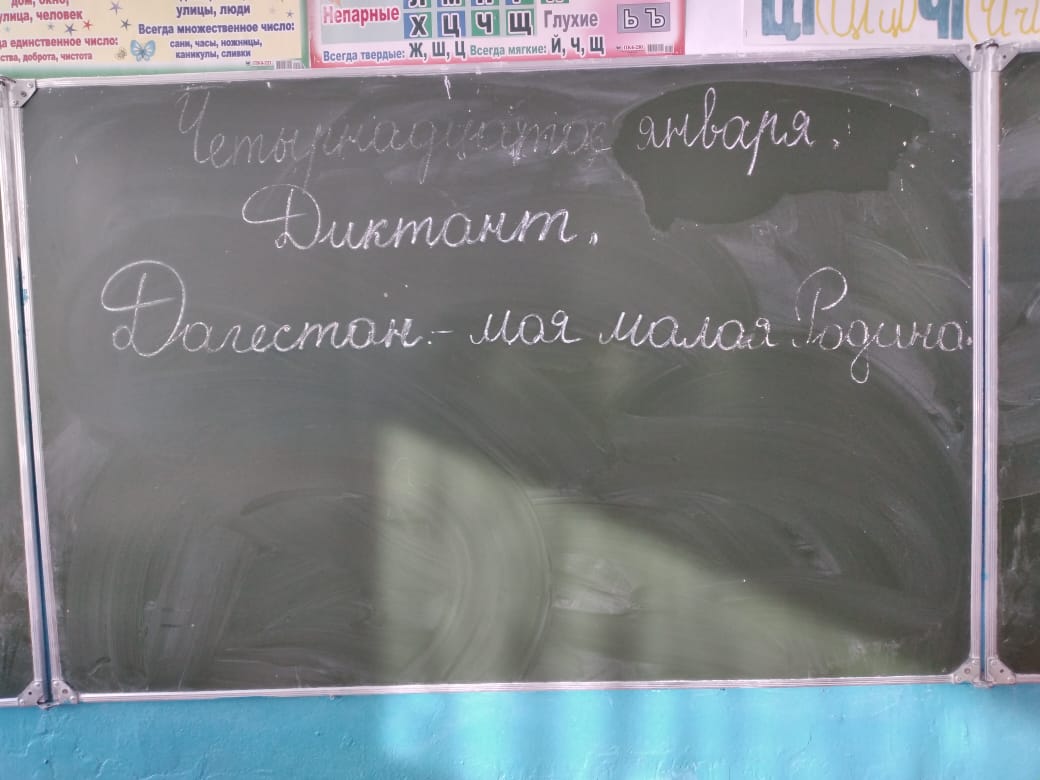 дом, окно,
улица, человек
а единственное число:
ства, доброта, чистота
улицы, люди
Всегда множественное число:
сани, часы, ножницы,
каникулы, сливки
Непарные
Х Ц Ч Щ
Глухие
Ь Ъ
Всегда твердые: Ж, Ш, Ц Всегда мягкие: Й, Ч, Щ
Четырнадцатое января.
Диктант.
Дагестан - моя малая Родина.